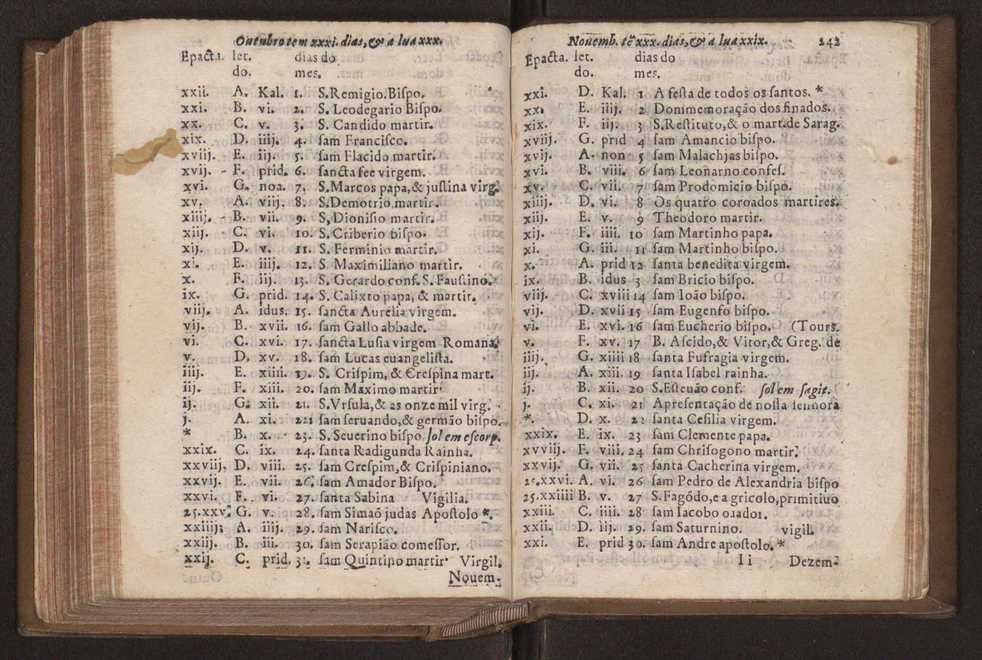 Outubro tem xxxi. dias, & a lua xxx.
Epacta. let. dias do
do. mes.
xxii. A. Kal. 1. S. Remigio. Bispo.
xxi. B. vi. 2. S. Leodegario Bispo.
xx. C. v. 3. S. Candido martir.
xix. D. iiij. 4. sam Francisco.
xviij. E. iij. 5. sam Flacido martir.
xvij. F. prid. 6. sancta fee virgem.
xvi. G. noa. 7. S. Marcos papa, & justina virg.
xv. A. viij. 8. S. Demotrio martir.
xiiij. B. vij. 9. S, Dionisio martir.
xiij. C. vi. 10. S. Criberio bispo.
xij. D. v. 11. S. Ferminio martir.
xi. E. iiij. 12. S. Maximiliano martir.
x. F. iij. 13. S. Gerardo conf. S. Faustino.
ix. G. prid. 14. S. Calixto papa, & martir.
viij. A. idus. 15. sancta Aurelia virgem.
vij. B. xvii. 16. sam Gallo abbade.
vi. C. xvi. 17. sancta Lusia virgem Romana.
v. D. xv. 18. sam Lucas euangelista.
iiij. E. xiiii. 19. S. Crispim, & Crespina mart.
iij. F. xiii. 20. sam Maximo martir
ij. G. xii. 21. S. Vrsula, & as onze mil virg.
j. A. xi. 22 sam seruando, & germão bispo.
* B. x. 23. S. Seuerino bispo sol em escorp.
xxix. C. ix. 24. santa Radigunda Rainha.
xxviij. D. viii. 25. sam Crespim, & Crispiniano.
xxvij. E. vii. 26. sam Amador Bispo.
xxvi. F. vi. 27. santa Sabina Vigilia.
25.xxv. G. v. 28. sam Simaõ judas Apostolo *.
xxiiij. A. iiij. 29. sam Narisco.
xxiij. B. iii. 30. sam Serapião comessor.
xxij. C. prid. 31. sam Quintino martir Virgil.
Nouem-
Nouemb. tẽ xxx. dias, & a lua xxix. 242
Epacta. let. dias do
do. mes.
xxi. D. Kal. 1 A festa de todos os santos. *
xx. E. iiij. 2 Donimemoração dos finados.
xix. F. iij. 3 S. Restituto, & o mart. de Sarag.
xviij. G. prid 4 sam Amancio bispo.
xvij. A. non 5 sam Malachjas bispo.
xvi. B. viii. 6 sam Leonarno confes.
xv. C. vii. 7 sam Prodomicio bispo.
xiiij. D. vi. 8 Os quatro coroados martires.
xiij. E. v. 9 Theodoro martir.
xij. F. iiii. 10 sam Martinho papa.
xi. G. iii. 11 sam Martinho bispo.
x. A. prid 12 santa benedita virgem.
ix. B. idus 3 sam Bricio bispo.
viij. C. xviii 14 sam Ioão bispo.
vij. D. xvii 15 sam Eugenfo bispo.
vi. E. xvi. 16 sam Eucherio bispo. (Tours.
v. F. xv. 17 B. Ascido, & Vitor, & Greg. de
iiij. G. xiiii 18 santa Fufragia virgem.
iij. A. xiii. 19 santa Isabel rainha.
ij. B. xii. 20 S. Esteuão conf. sol em sagit.
j. C. xi. 21 Apresentação de nossa senhora
*. D. x. 22 santa Cesilia virgem.
xxix. E. ix. 23 sam Clemente papa.
xxviij. F. viii. 24 sam Chrisogono martir.
xxvij. G. vii. 25 santa Cacherina virgem.
25.xxvi. A. vi. 26 sam Pedro de Alexandria bispo
25.xxiiii B. v. 27 S. Fagódo, e agricolo, primitiuo
xxiii. C. iiii. 28 sam Iacobo
xxii. D. iij. 29. sam Saturnino. vigil.
xxi. E. prid 30. sam Andre apostolo. *
Ii Dezem-